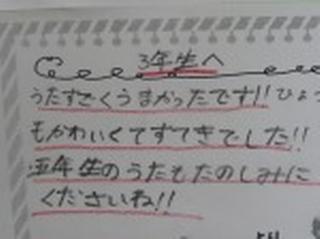 3年生へ
うたすごくうまかったです!! ひょう
もかわいくてすてきでした!!
五年生のうたもたのしみに
くださいね!!